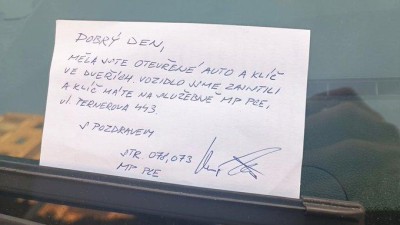 DOBRÝ DEN,
MĚLA JSTE OTEVŘENÉ AUTO A KLÍČ
VE DVEŘÍCH. VOZIDLO JSME ZAJISTILI
A KLÍČ MÁTE NA SLUŽEBNĚ MP PCE,
UL. PERNEROVA 443.
S POZDRAVEM
STR. 076, 073
MP PCE